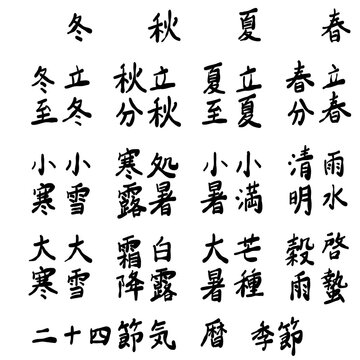 春
立春 雨水 啓蟄
春分 清明 穀雨
夏
立夏 小満 芒種
夏至 小暑 大暑
秋
立秋 処暑 白露
秋分 寒露 霜降
冬
立冬 小雪 大雪
冬至 小寒 大寒
二十四節気 暦 季節